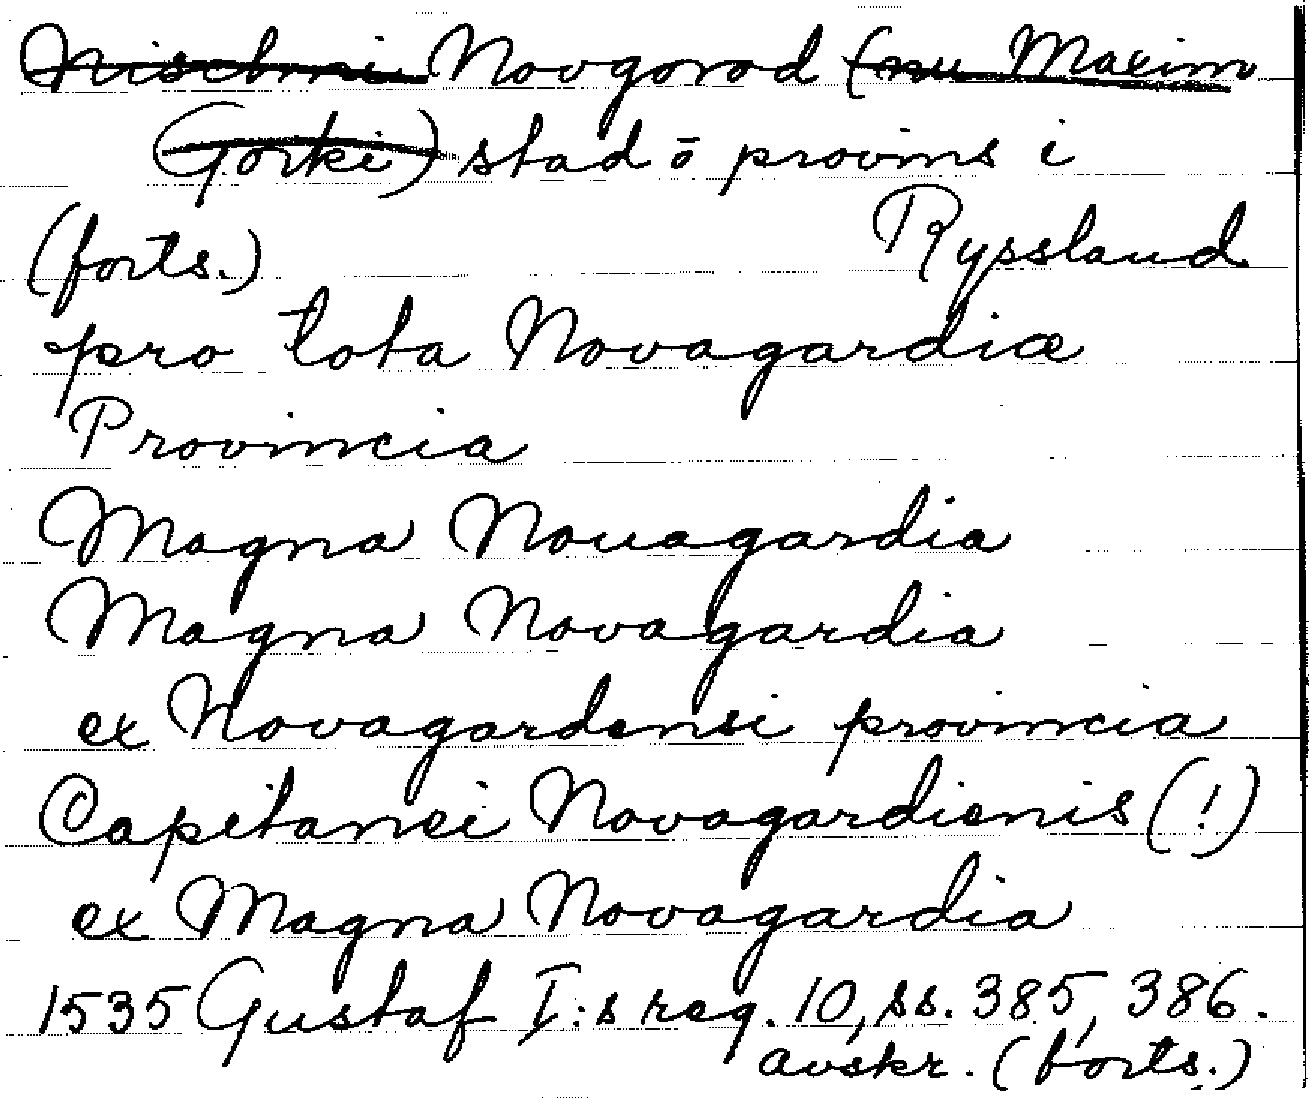 Nischni Novgorod (nu Maxim
Gorki) stad ō provins i
Ryssland
(forts.)
pro tota Novagardiæ
Provincia
Magna Nouagardia
Magna Novagardia
ex Novagardensi provincia
Capitanei Novagardienis (!)
ex Magna Novagardia
1535 Gustaf I:s reg. 10, ss. 385, 386.
avskr. (forts.)